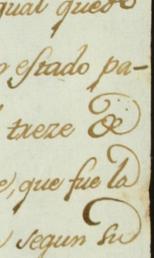 qual quedo
estado pa-
txeze de
que fue la
segun su